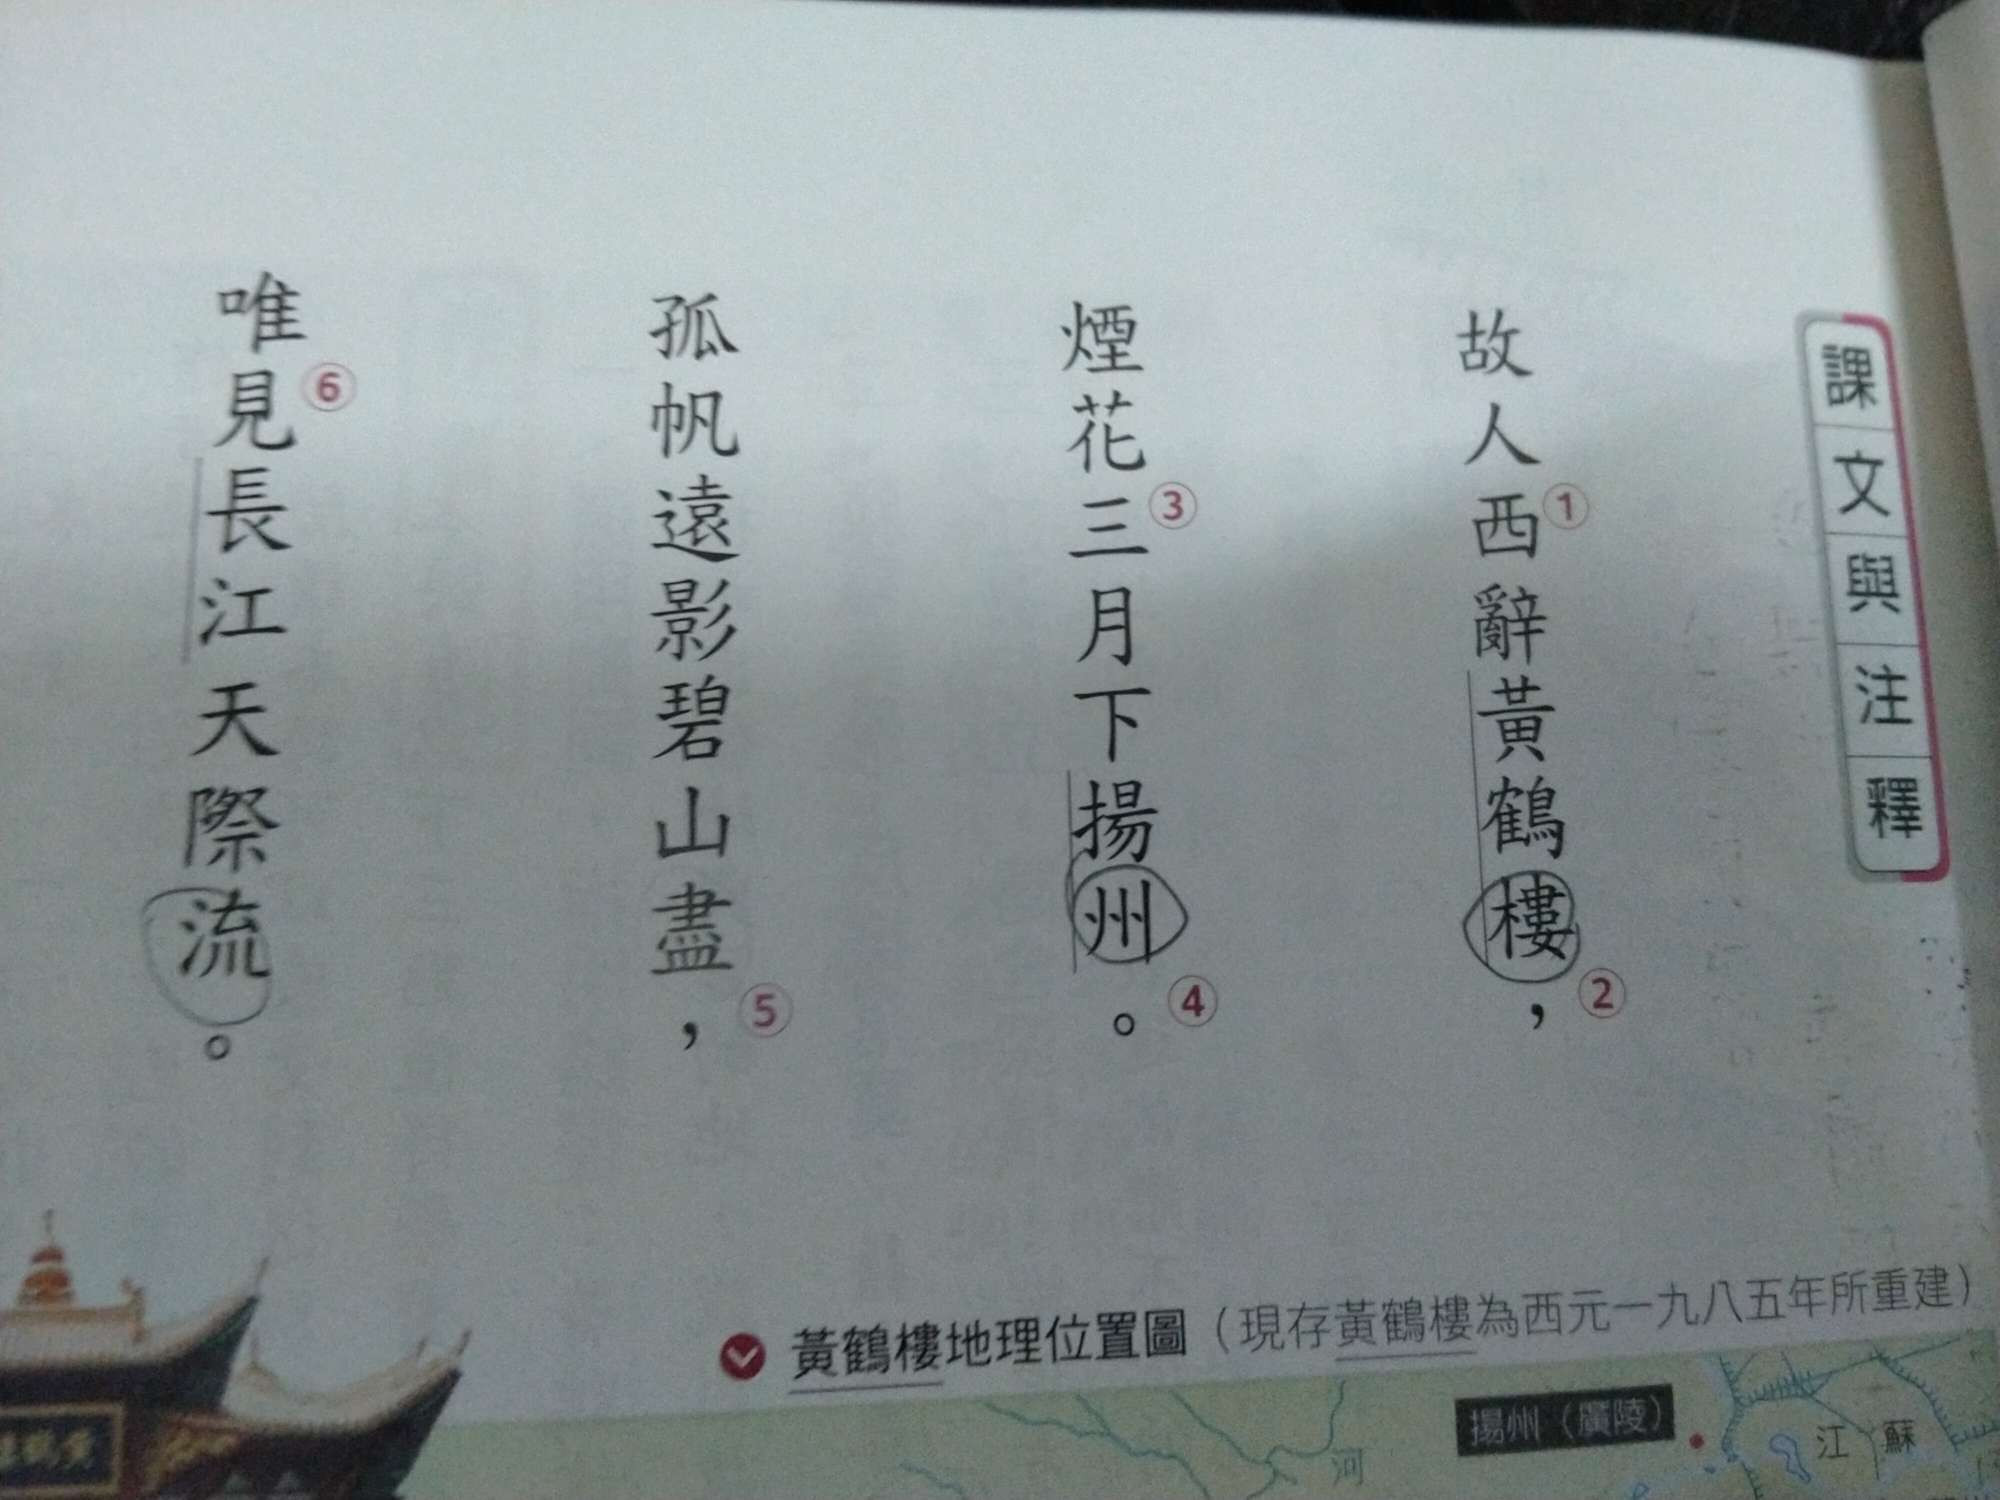 課文與注釋
故人西①辭黃鶴樓②，
煙花③三月下揚州④。
孤帆遠影碧山盡⑤，
唯見⑥長江天際流。
黃鶴樓地理位置圖（現存黃鶴樓為西元一九八五年所重建）
揚州（廣陵）
江蘇
河